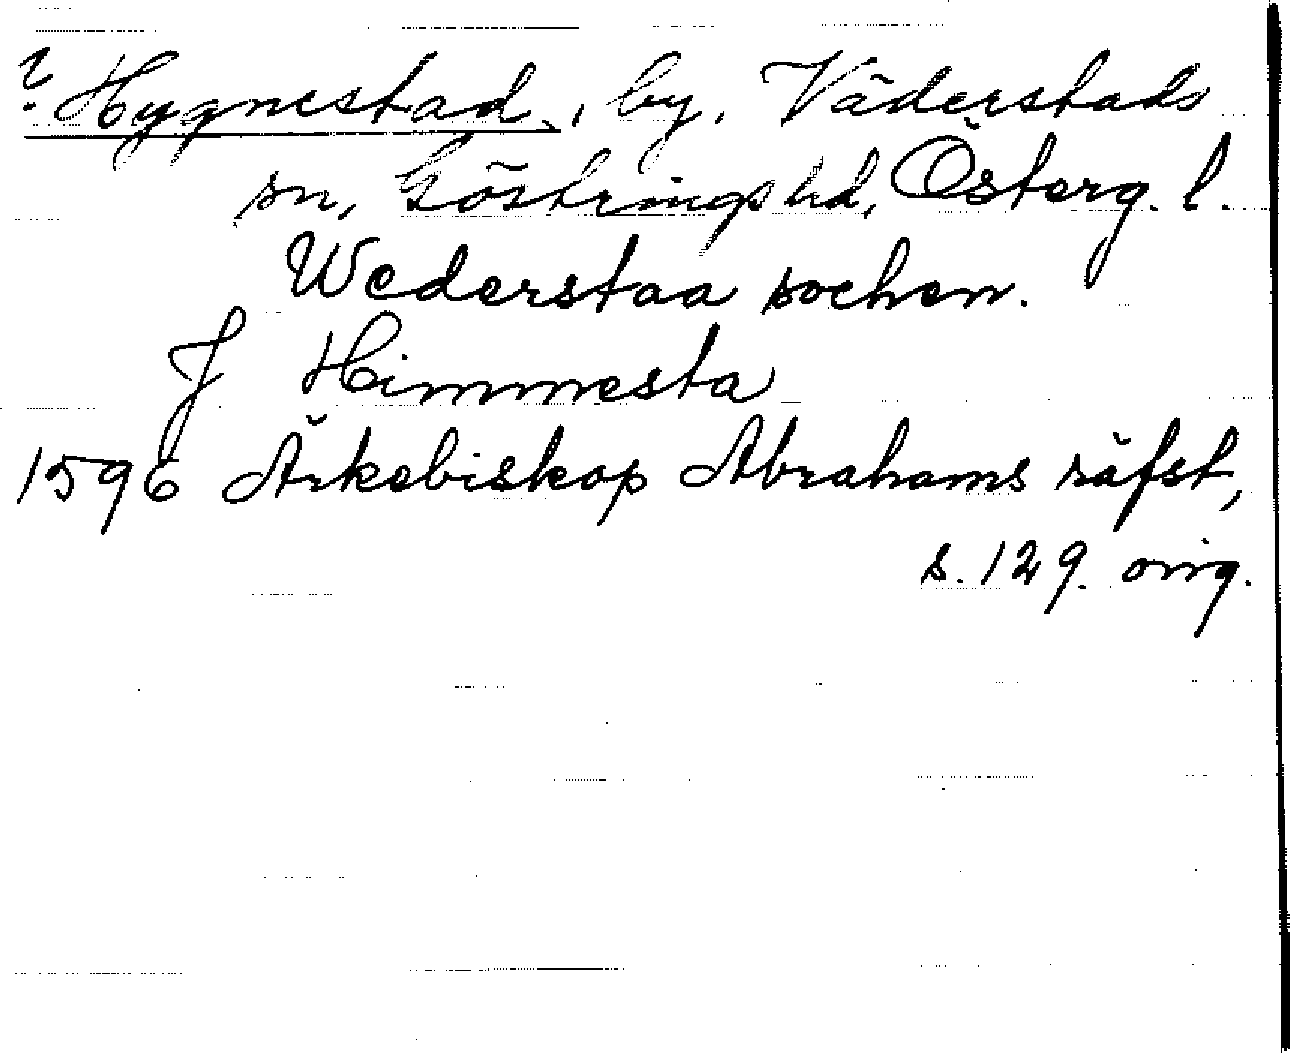 ? Hygnestad, by, Väderstads
sn, Göstrings hd, Österg. l.
Wederstaa sochen.
J Himmesta
1596 Ärkebiskop Abrahams räfst,
s. 129. orig.